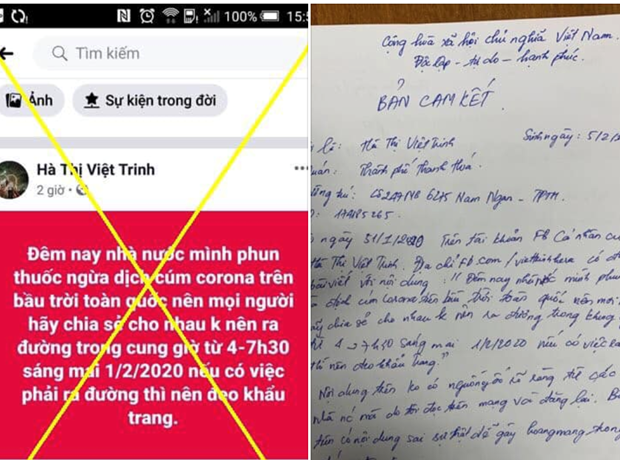 100% 15:5
Tìm kiếm
Ảnh
Sự kiện trong đời
Hà Thị Việt Trinh
2 giờ
Đêm nay nhà nước mình phun
thuốc ngừa dịch cúm corona trên
bầu trời toàn quốc nên mọi người
hãy chia sẻ cho nhau k nên ra
đường trong cung giờ từ 4-7h30
sáng mai 1/2/2020 nếu có việc
phải ra đường thì nên đeo khẩu
trang.
Cộng hòa xã hội chủ nghĩa Việt Nam.
Độc lập - tự do - hạnh phúc.
BẢN CAM KẾT.
là: Hà Thị Việt Trinh Sinh ngày: 5/2/
Thành phố Thanh Hoá.
Nam Ngạn - TPTH
ngày 31/1/2020 Trên tài khoản FB Cá nhân
Hà Thị Việt Trinh. Địa chỉ fb.com/
bài viết với nội dung: "Đêm nay nhà nước mình phun
dịch cúm corona trên bầu trời toàn quốc nên mọi
chia sẻ cho nhau k nên ra đường trong khung
4 - 7h30 sáng mai 1/2/2020 nếu có việc
thì nên đeo khẩu trang."
Nội dung trên ko có nguồn rõ ràng
mà do tôi đọc trên mạng và đăng lại.
trên có nội dung sai sự thật dễ gây hoang mang trong